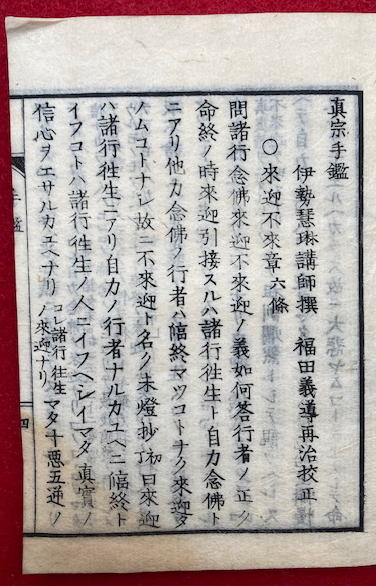 真宗手鑑
伊勢慧琳講師撰 福田義導再治校正
〇來迎不來章 六條
問諸行念佛來迎不來迎ノ義如何答行者ノ正ク
命終ノ時來迎引接スルハ諸行徃生ト自力念佛ト
ニアリ他力念佛ノ行者ハ臨終マツコトナク來迎タ
ノムコトナシ故ニ不來迎ト名ク末燈抄ノ初曰來迎
ハ諸行徃生ニアリ自力ノ行者ナルカユヘニ臨終ト
イフコトハ諸行徃生ノ人ニイフヘシイマタ真實ノ
信心ヲエサルカユヘナリ コレ諸行徃生ノ來迎ナリ マタ十悪五逆ノ
四